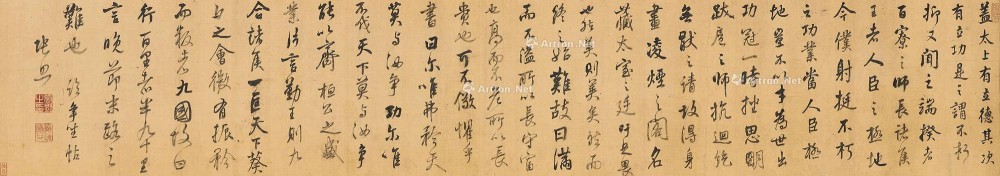 蓋太上有立德其次
有立功是之謂不朽
抑又聞之端揆者
百寮之師長諸侯
王者人臣之極地
今僕射挺不朽
之功業當人臣極
地豈不以才為世出
功冠一時挫思明
跋扈之師抗迴紇
無猒之請故得身
畫凌煙之閣名
藏太室之廷吁足畏
也然美則美矣然而
終之始難故曰滿
而不溢所以長守富
也高而不危所以長
貴也可不儆懼乎
書曰爾唯弗矜天
莫与汝爭功爾唯
不伐天下莫与汝爭
能以齊桓公之盛
業片言勤王則九
合諸侯一匡天下葵
丘之會微有振矜
而叛者九國故曰
行百里者半九十里
言晚節末路之
難也 臨爭坐帖
張照